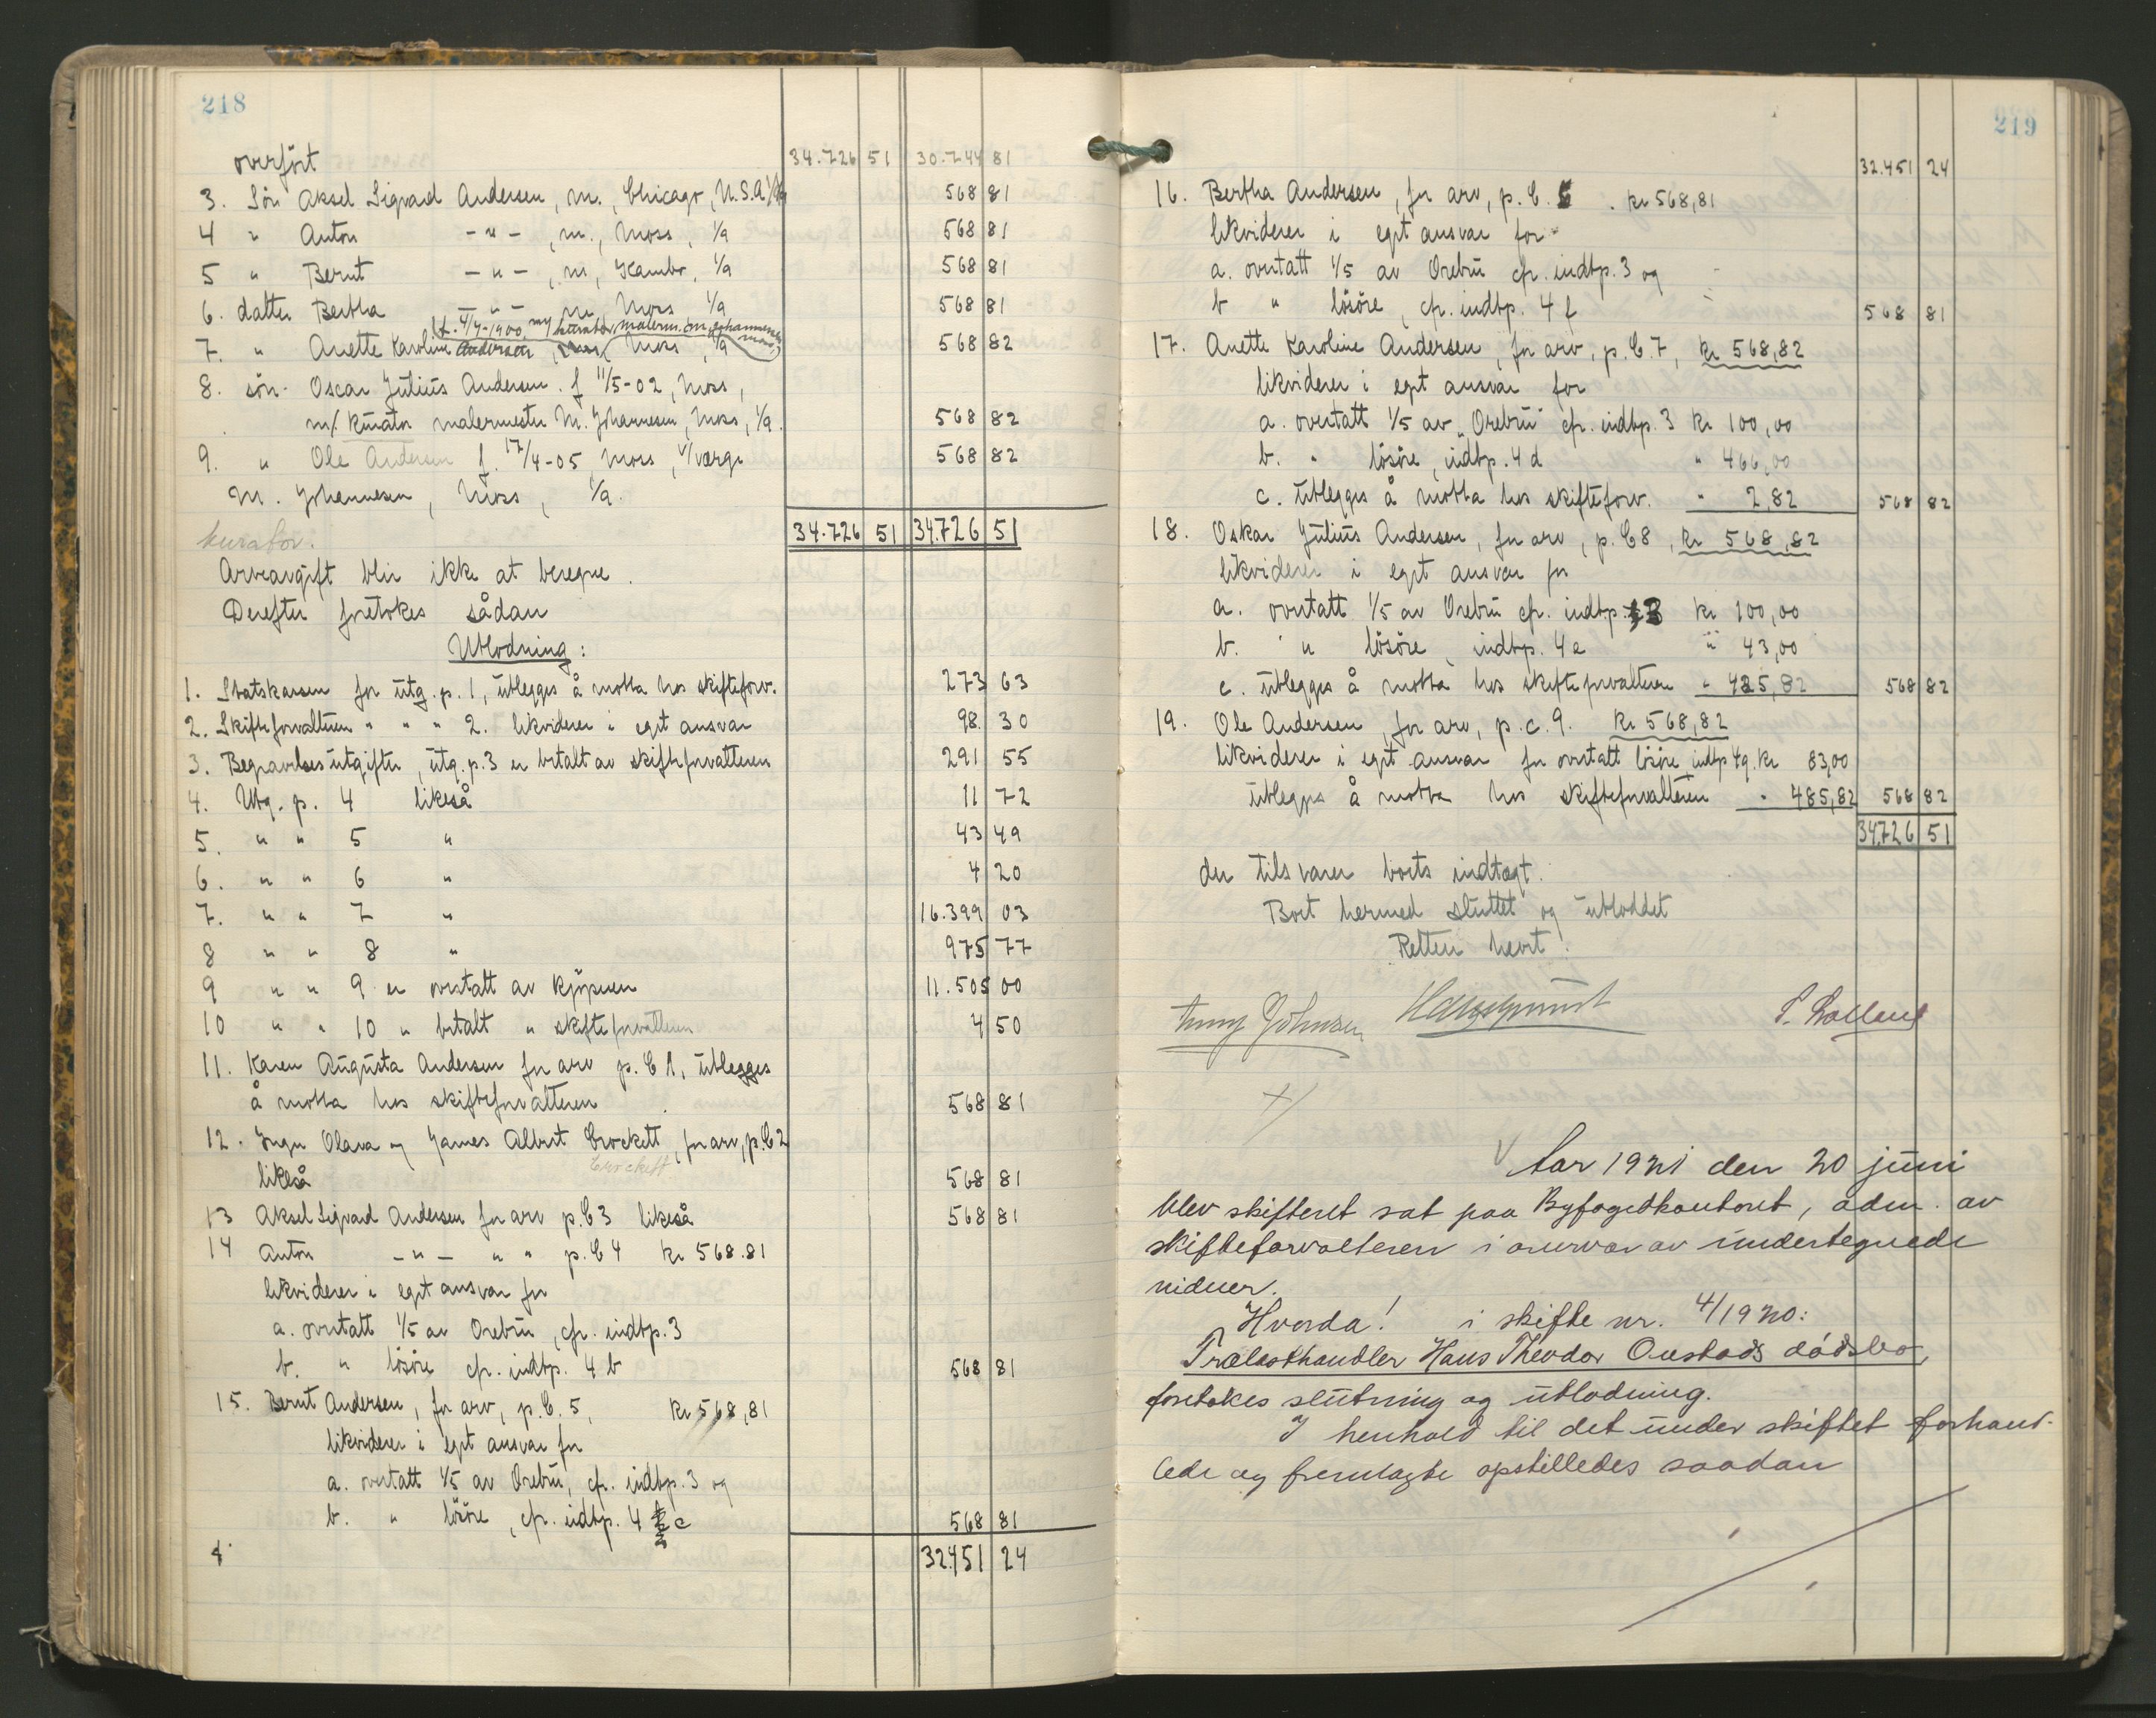 218
overført 34.726 51 30.744 81
3. Sön Aksel Sigvard Andersen, m., Chicago, U.S.A. 1/9 568 81
4 " Anton -"-, m., Moss, 1/9 568 81
5 " Bernt -"-, m, Kambo, 1/9 568 81
6. datter Bertha -"- m, Moss 1/9 568 81
f. 4/7-1900, m/ kurator malerm. M. Johannesen, Moss
7. " Anette Karoline Andersen, Moss, 1/9 568 82
8. sön. Oscar Julius Andersen. f 11/5-02, Moss,
m/ kurator malermester M. Johannesen, Moss, 1/9. 568 82
9. " Ole Andersen f. 17/4-05, Moss, v/verge 568 82
M. Johannesen, Moss, 1/9.
34.726 51 34.726 51
kurator.
Arveavgift blir ikke at beregne.
Derefter foretokes sådan
Utlodning:
1. Statskassen for utg. p. 1, utlegges å motta hos skifteforv. 273 63
2. Skifteforvalteren " " " 2. likviderer i eget ansvar 98. 30
3. Begravelsesutgifter, utg. p. 3 er betalt av skifteforvalteren 291 55
4. Utg. p. 4 likeså 11 72
5. " " 5 " 43 49
6. " " 6 " 4 20
7. " " 7 " 16.399 03
8 " " 8 " 975 77
9 " " 9 er overtatt av kjøperen 11.505 00
10 " " 10 " betalt " skifteforvalteren 4 50
11. Karen Augusta Andersen for arv p. C 1, utlegges
å motta hos skifteforvalteren 568 81
12. Inga Olava og James Albert Crockett, for arv, p. C 2
Crockett
likeså 568 81
13 Aksel Sigvard Andersen for arv p. C 3 likeså 568 81
14 Anton -"- " " p. C 4 kr 568.81
likviderer i eget ansvar for
a. overtatt 1/5 av Orebru, cfr. indtp. 3
b. " lösöre cfr. indtp. 4 b 568 81
15. Bernt Andersen, for arv, p. C. 5, kr 568,81
likviderer i eget ansvar for
a. overtatt 1/5 av Orebru, cfr. indtp. 3 og
b. " lösöre, cfr. indtp. 4 c 568 81
32.451 24
219
32.451 24
16. Bertha Andersen, for arv, p. C. 6. kr 568,81
likviderer i eget ansvar for
a. overtatt 1/5 av Orebru cfr. indtp. 3 og
b " lösöre, cfr. indtp. 4 f 568 81
17. Anette Karoline Andersen, for arv, p. C. 7, kr 568,82
likviderer i eget ansvar for
a. overtatt 1/5 av „Orebru" cfr. indtp. 3 kr 100,00
b. " lösöre, indtp. 4 d " 466,00
c. utlegges å motta hos skifteforv. " 2,82 568 82
18. Oskar Julius Andersen, for arv, p. C 8, kr 568,82
likviderer i eget ansvar for
a. overtatt 1/5 av Orebru cfr. indtp. 3 kr 100,00
b. " lösöre, indtp. 4 e " 43,00
c. utlegges å motta hos skifteforvalteren " 425,82 568 82
19. Ole Andersen, for arv, p. c. 9. kr 568,82
likviderer i eget ansvar for overtatt lösöre indtp 4 g. kr 83,00
utlegges å motta hos skifteforvalteren " 485,82 568 82
34.726 51
der tilsvarer boets indtægt.
Boet hermed sluttet og utloddet
Retten hevet!
Johnsen
+/
Aar 1921 den 20 juni
blev skifteret sat paa Byfogedkontoret, adm. av
skifteforvalteren i overvær av undertegnede
vidner.
Hvorda! i skifte nr. 4/1920:
Trælasthandler Hans Theodor Onstads dødsbo,
foretokes slutning og utlodning.
I henhold til det under skiftet forhand-
lede og fremlagte opstilledes saadan